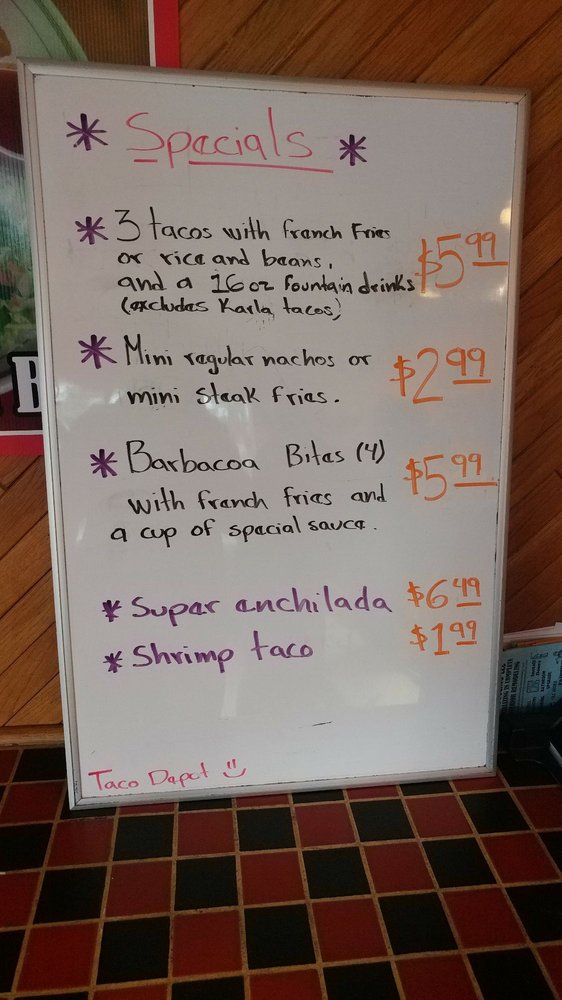 * Specials *
* 3 tacos with french Fries
or rice and beans,
and a 16oz Fountain drinks
(excludes Karla tacos)
$5.99
* Mini regular nachos or
mini steak fries.
$2.99
* Barbacoa Bites (4)
with french fries and
a cup of special sauce.
$5.99
* Super enchilada $6.49
* Shrimp taco $1.99
Taco Depot